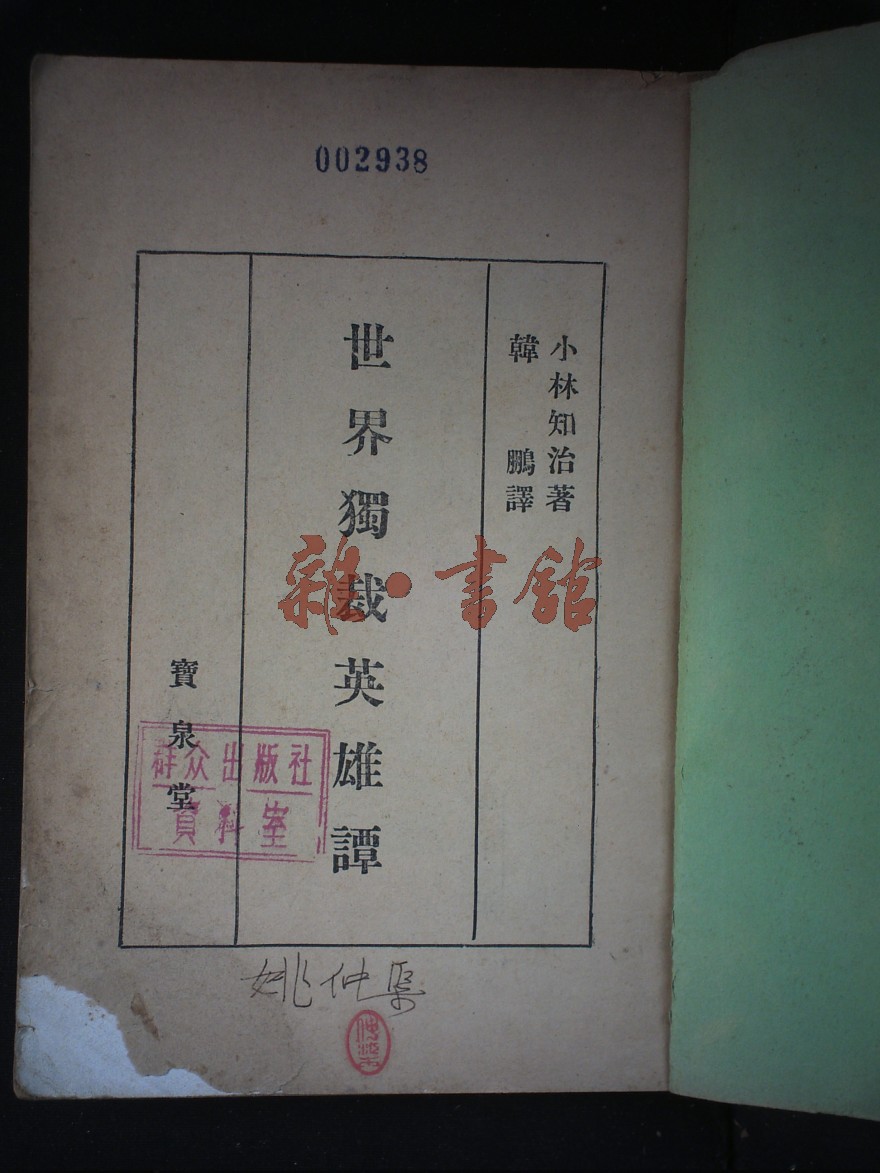 002938
小林知治著
韓 鵬譯
世界獨裁英雄譚
寶泉堂
群众出版社
資料室
雜·書館
姚仲